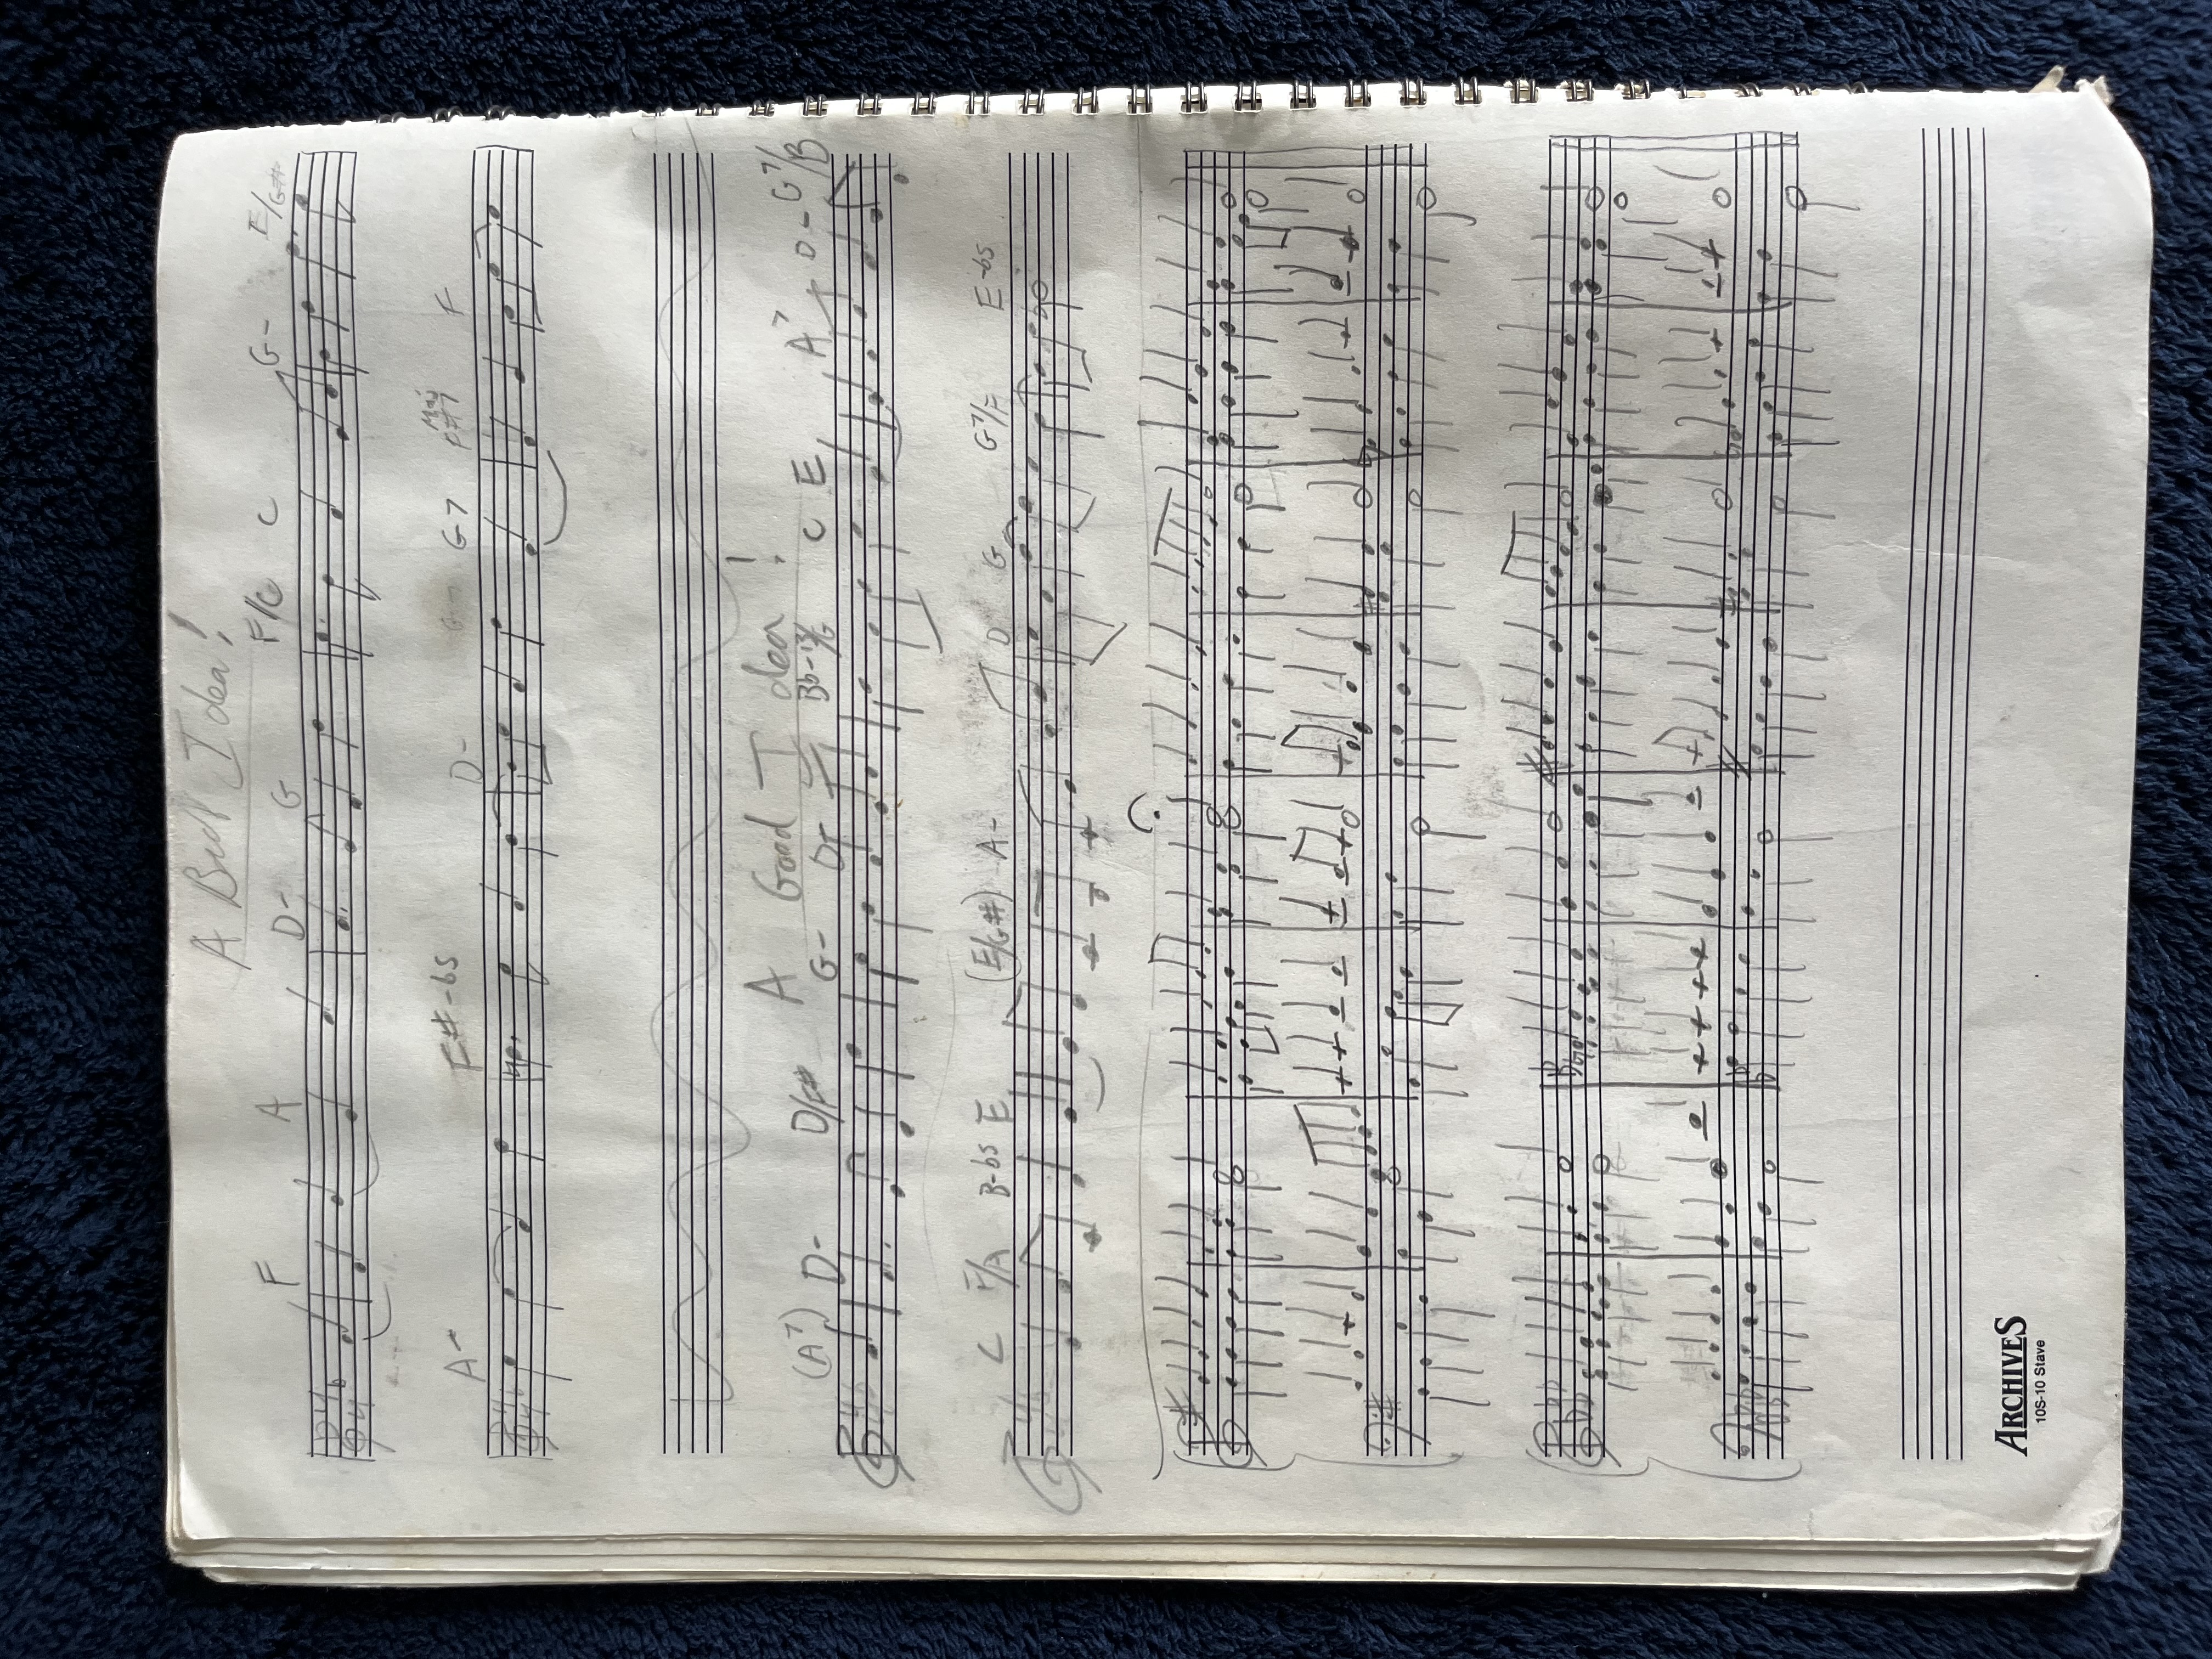 A Bud Idea!
F A D- G F/C C G- E/G#
A- F#-b5 D- G7 Maj F#7 F
A Good Idea!
(A7) D- D/F# G- D- Bb-13/G C E A7 D- G7/B
C F/A B-b5 E (E/G#) A- D G G7/F E-b5
ARCHIVES
10S-10 Stave